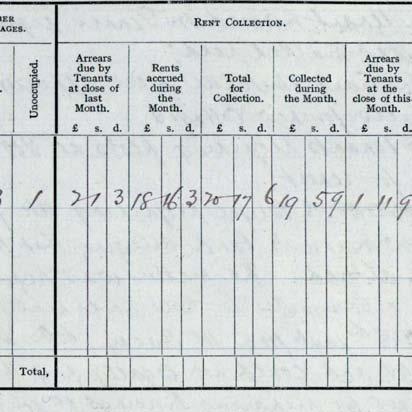 BER
AGES.
RENT COLLECTION.
Unoccupied.
Arrears due by Tenants at close of last Month.
Rents accrued during the Month.
Total for Collection.
Collected during the Month.
Arrears due by Tenants at the close of this Month.
£ s. d. £ s. d. £ s. d. £ s. d. £ s. d.
1 2 1 3 18 16 3 20 17 6 19 5 9 1 11 9
Total,